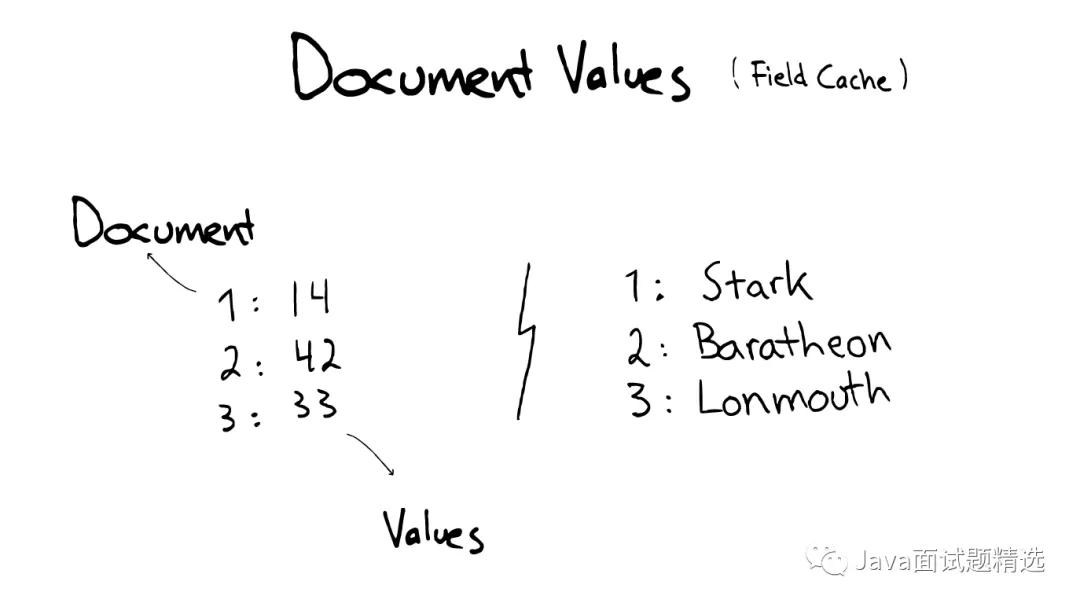 Document Values (Field Cache)
Document
1: 14
2: 42
3: 33
Values
1: Stark
2: Baratheon
3: Lonmouth
Java面试题精选